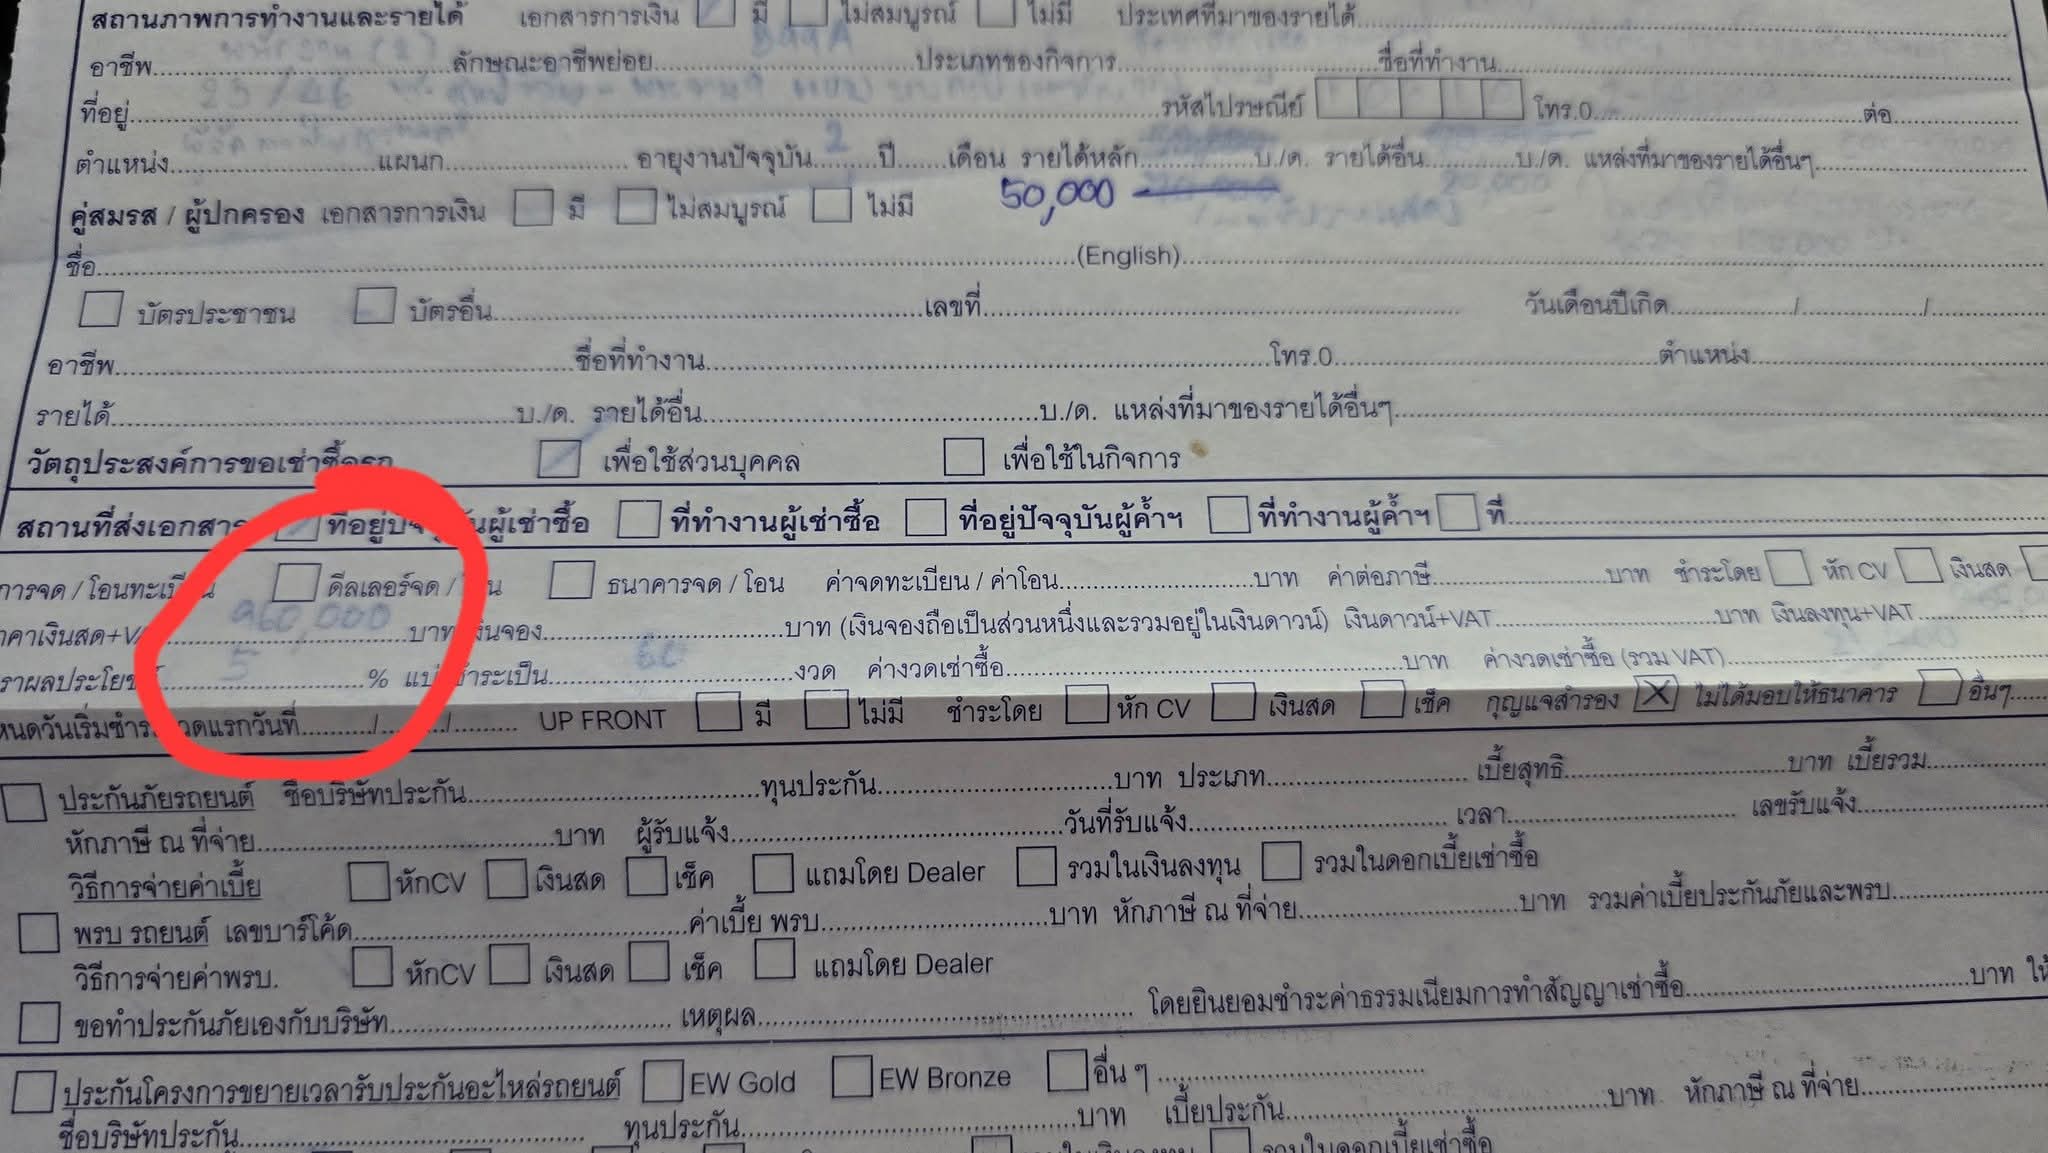 สถานภาพการทำงานและรายได้ เอกสารการเงิน มี ไม่สมบูรณ์ ไม่มี ประเทศที่มาของรายได้
อาชีพ ลักษณะอาชีพย่อย ประเภทของกิจการ ชื่อที่ทำงาน
ที่อยู่ 23/46 รหัสไปรษณีย์ โทร.0 ต่อ
ตำแหน่ง แผนก อายุงานปัจจุบัน 2 ปี เดือน รายได้หลัก บ./ด. รายได้อื่น บ./ด. แหล่งที่มาของรายได้อื่นๆ
คู่สมรส / ผู้ปกครอง เอกสารการเงิน มี ไม่สมบูรณ์ ไม่มี 50,000 20,000
ชื่อ (English)
บัตรประชาชน บัตรอื่น เลขที่ วันเดือนปีเกิด / /
อาชีพ ชื่อที่ทำงาน โทร.0 ตำแหน่ง
รายได้ บ./ด. รายได้อื่น บ./ด. แหล่งที่มาของรายได้อื่นๆ
วัตถุประสงค์การขอเช่าซื้อรถ เพื่อใช้ส่วนบุคคล เพื่อใช้ในกิจการ
สถานที่ส่งเอกสาร ที่อยู่ปัจจุบันผู้เช่าซื้อ ที่ทำงานผู้เช่าซื้อ ที่อยู่ปัจจุบันผู้ค้ำฯ ที่ทำงานผู้ค้ำฯ ที่
การจด / โอนทะเบียน ดีลเลอร์จด / โอน ธนาคารจด / โอน ค่าจดทะเบียน / ค่าโอน บาท ค่าต่อภาษี บาท ชำระโดย หัก CV เงินสด
าคาเงินสด+V 960,000 บาท เงินจอง บาท (เงินจองถือเป็นส่วนหนึ่งและรวมอยู่ในเงินดาวน์) เงินดาวน์+VAT บาท เงินลงทุน+VAT
ราผลประโยช 5 % แบ่งชำระเป็น 60 งวด ค่างวดเช่าซื้อ บาท ค่างวดเช่าซื้อ (รวม VAT)
หนดวันเริ่มชำระงวดแรกวันที่ / / UP FRONT มี ไม่มี ชำระโดย หัก CV เงินสด เช็ค กุญแจสำรอง X ไม่ได้มอบให้ธนาคาร อื่นๆ
ประกันภัยรถยนต์ ชื่อบริษัทประกัน ทุนประกัน บาท ประเภท เบี้ยสุทธิ บาท เบี้ยรวม
หักภาษี ณ ที่จ่าย บาท ผู้รับแจ้ง วันที่รับแจ้ง เวลา เลขรับแจ้ง
วิธีการจ่ายค่าเบี้ย หักCV เงินสด เช็ค แถมโดย Dealer รวมในเงินลงทุน รวมในดอกเบี้ยเช่าซื้อ
พรบ รถยนต์ เลขบาร์โค้ด ค่าเบี้ย พรบ บาท หักภาษี ณ ที่จ่าย บาท รวมค่าเบี้ยประกันภัยและพรบ
วิธีการจ่ายค่าพรบ. หักCV เงินสด เช็ค แถมโดย Dealer
ขอทำประกันภัยเองกับบริษัท เหตุผล โดยยินยอมชำระค่าธรรมเนียมการทำสัญญาเช่าซื้อ บาท ให้
ประกันโครงการขยายเวลารับประกันอะไหล่รถยนต์ EW Gold EW Bronze อื่น ๆ บาท หักภาษี ณ ที่จ่าย
ชื่อบริษัทประกัน ทุนประกัน บาท เบี้ยประกัน
รวมในดอกเบี้ยเช่าซื้อ